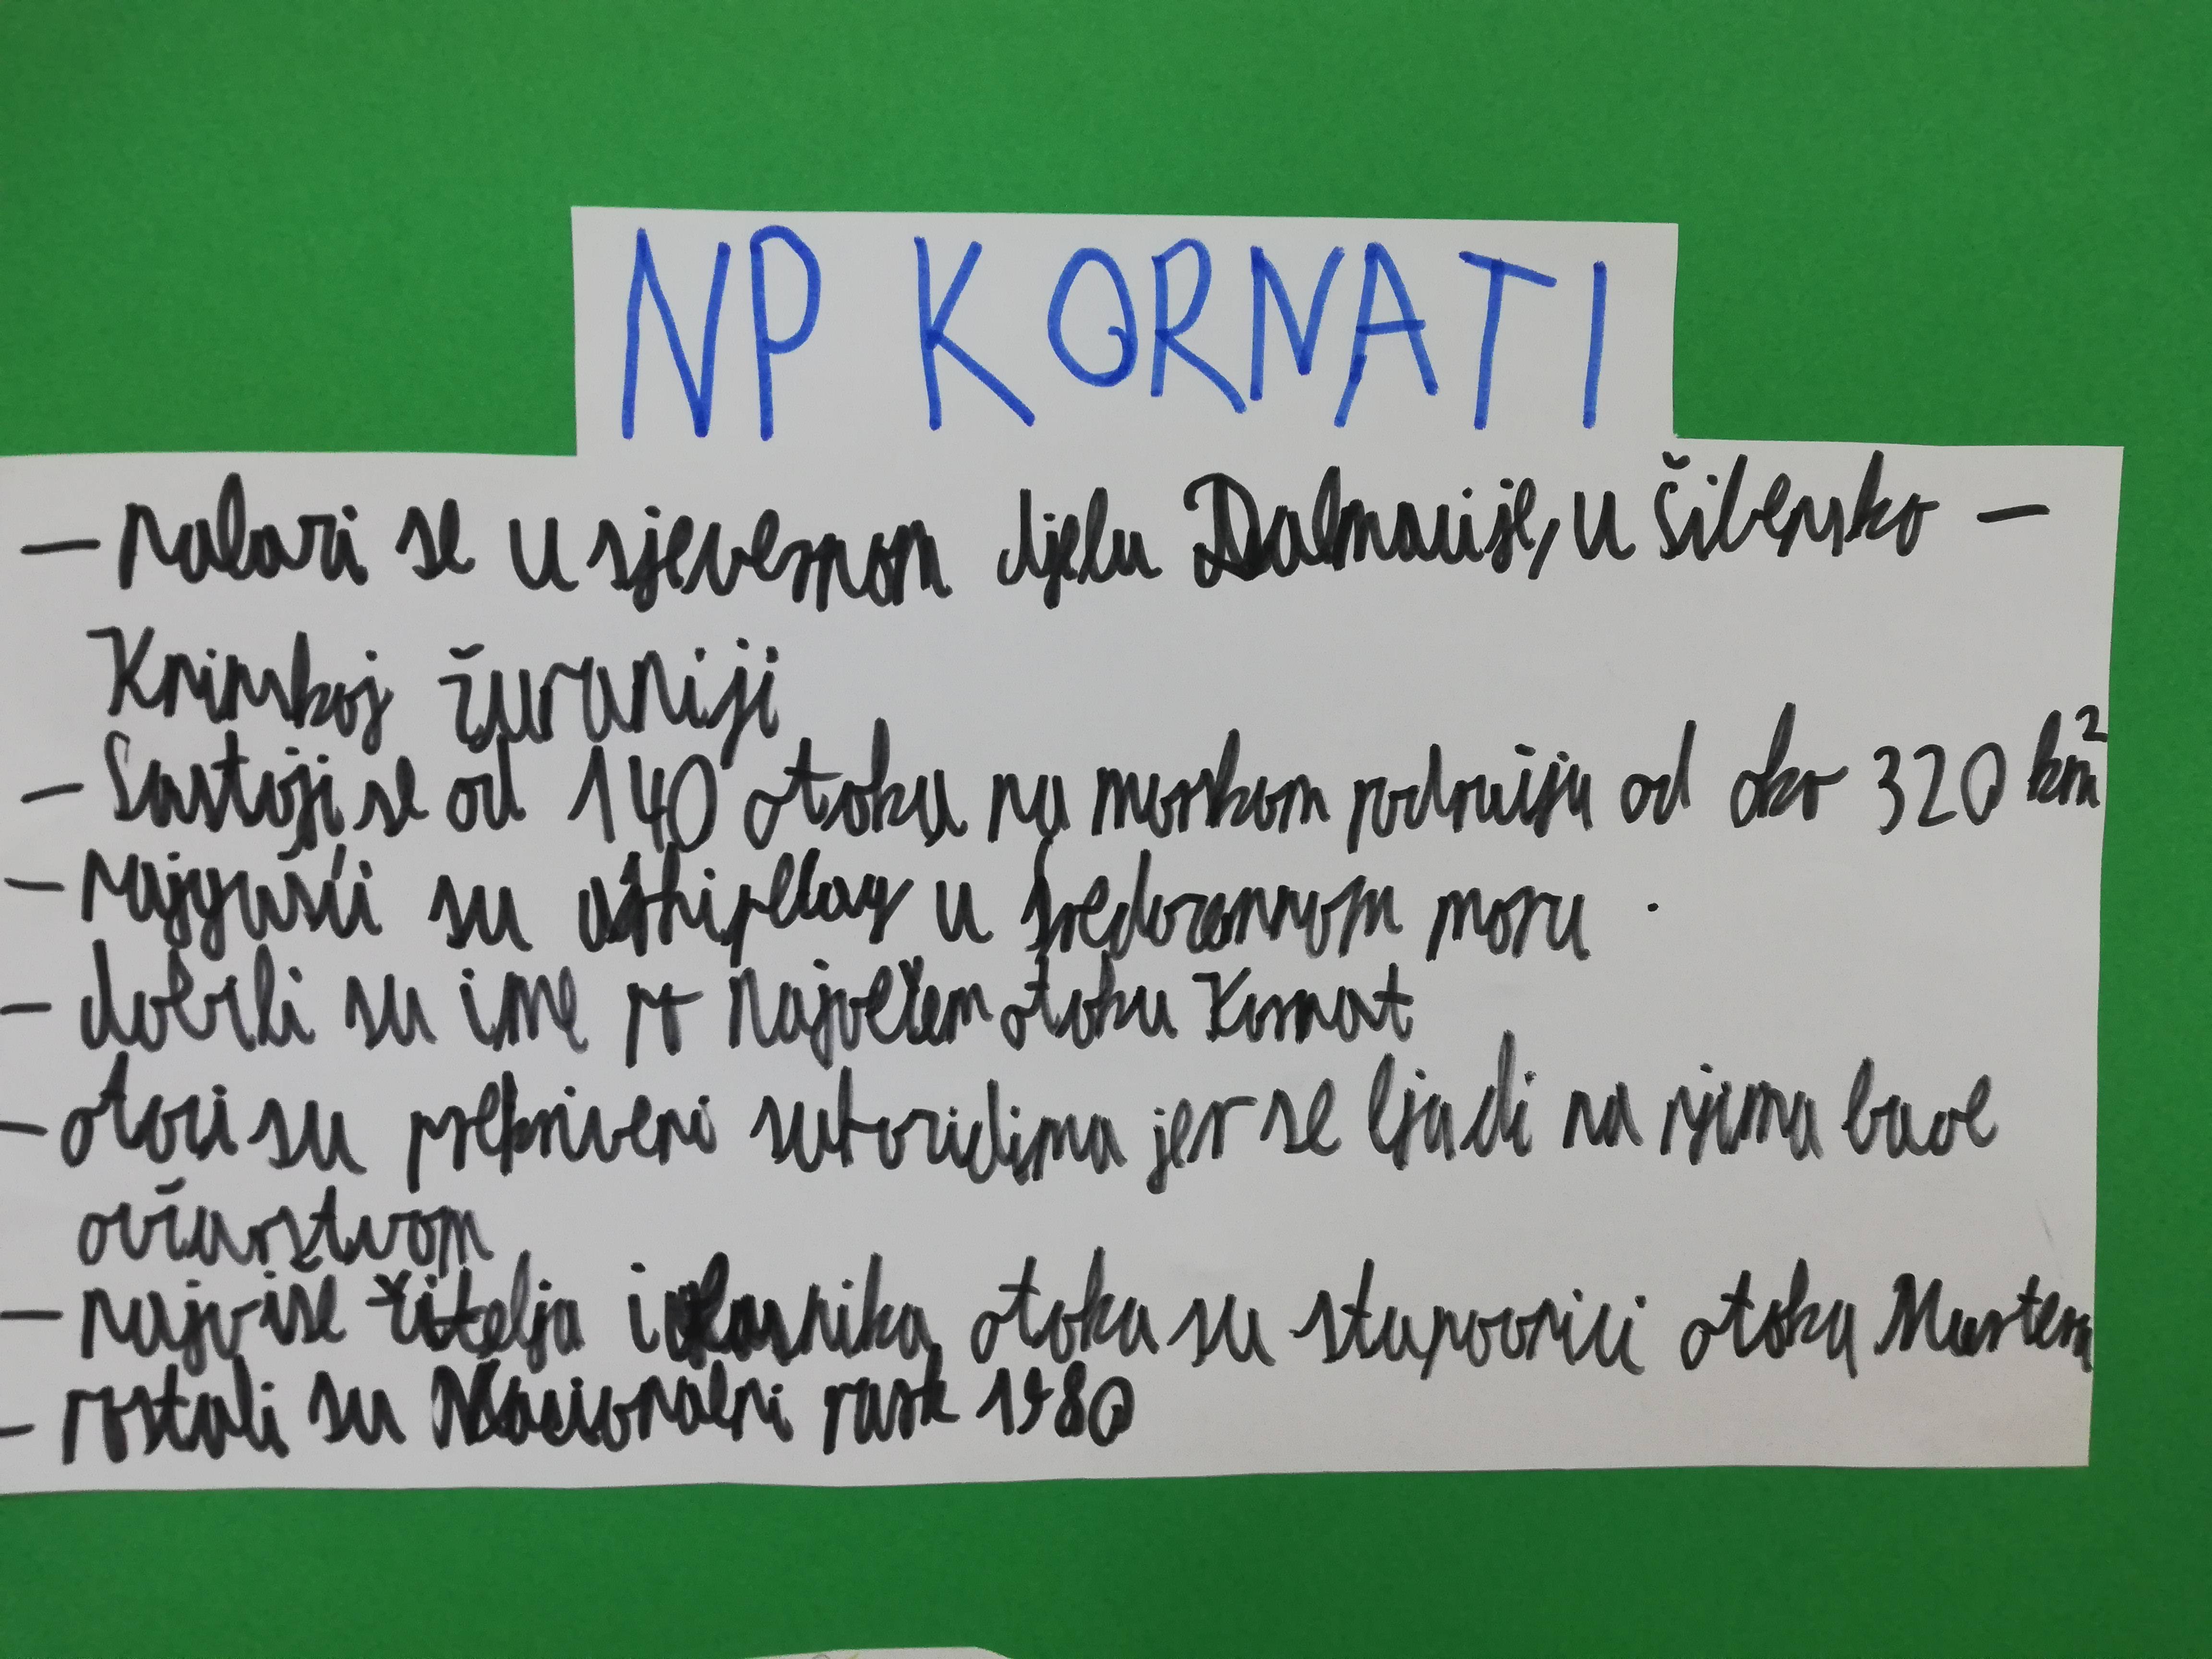 NP KORNATI
- nalazi se u sjevernom djelu Dalmacije, u Šibensko -
Kninskoj županiji
- Sastoji se od 140 otoka na morskom području od oko 320 km²
- najgušći su arhipelag u Sredozemnom moru.
- dobili su ime po najvećem otoku Kornat
- otoci su prekriveni suhozidima jer se ljudi na njima bave
ovčarstvom
- najviše žitelja i vlasnika otoka su stanovnici otoka Murtera
- postali su Nacionalni park 1980